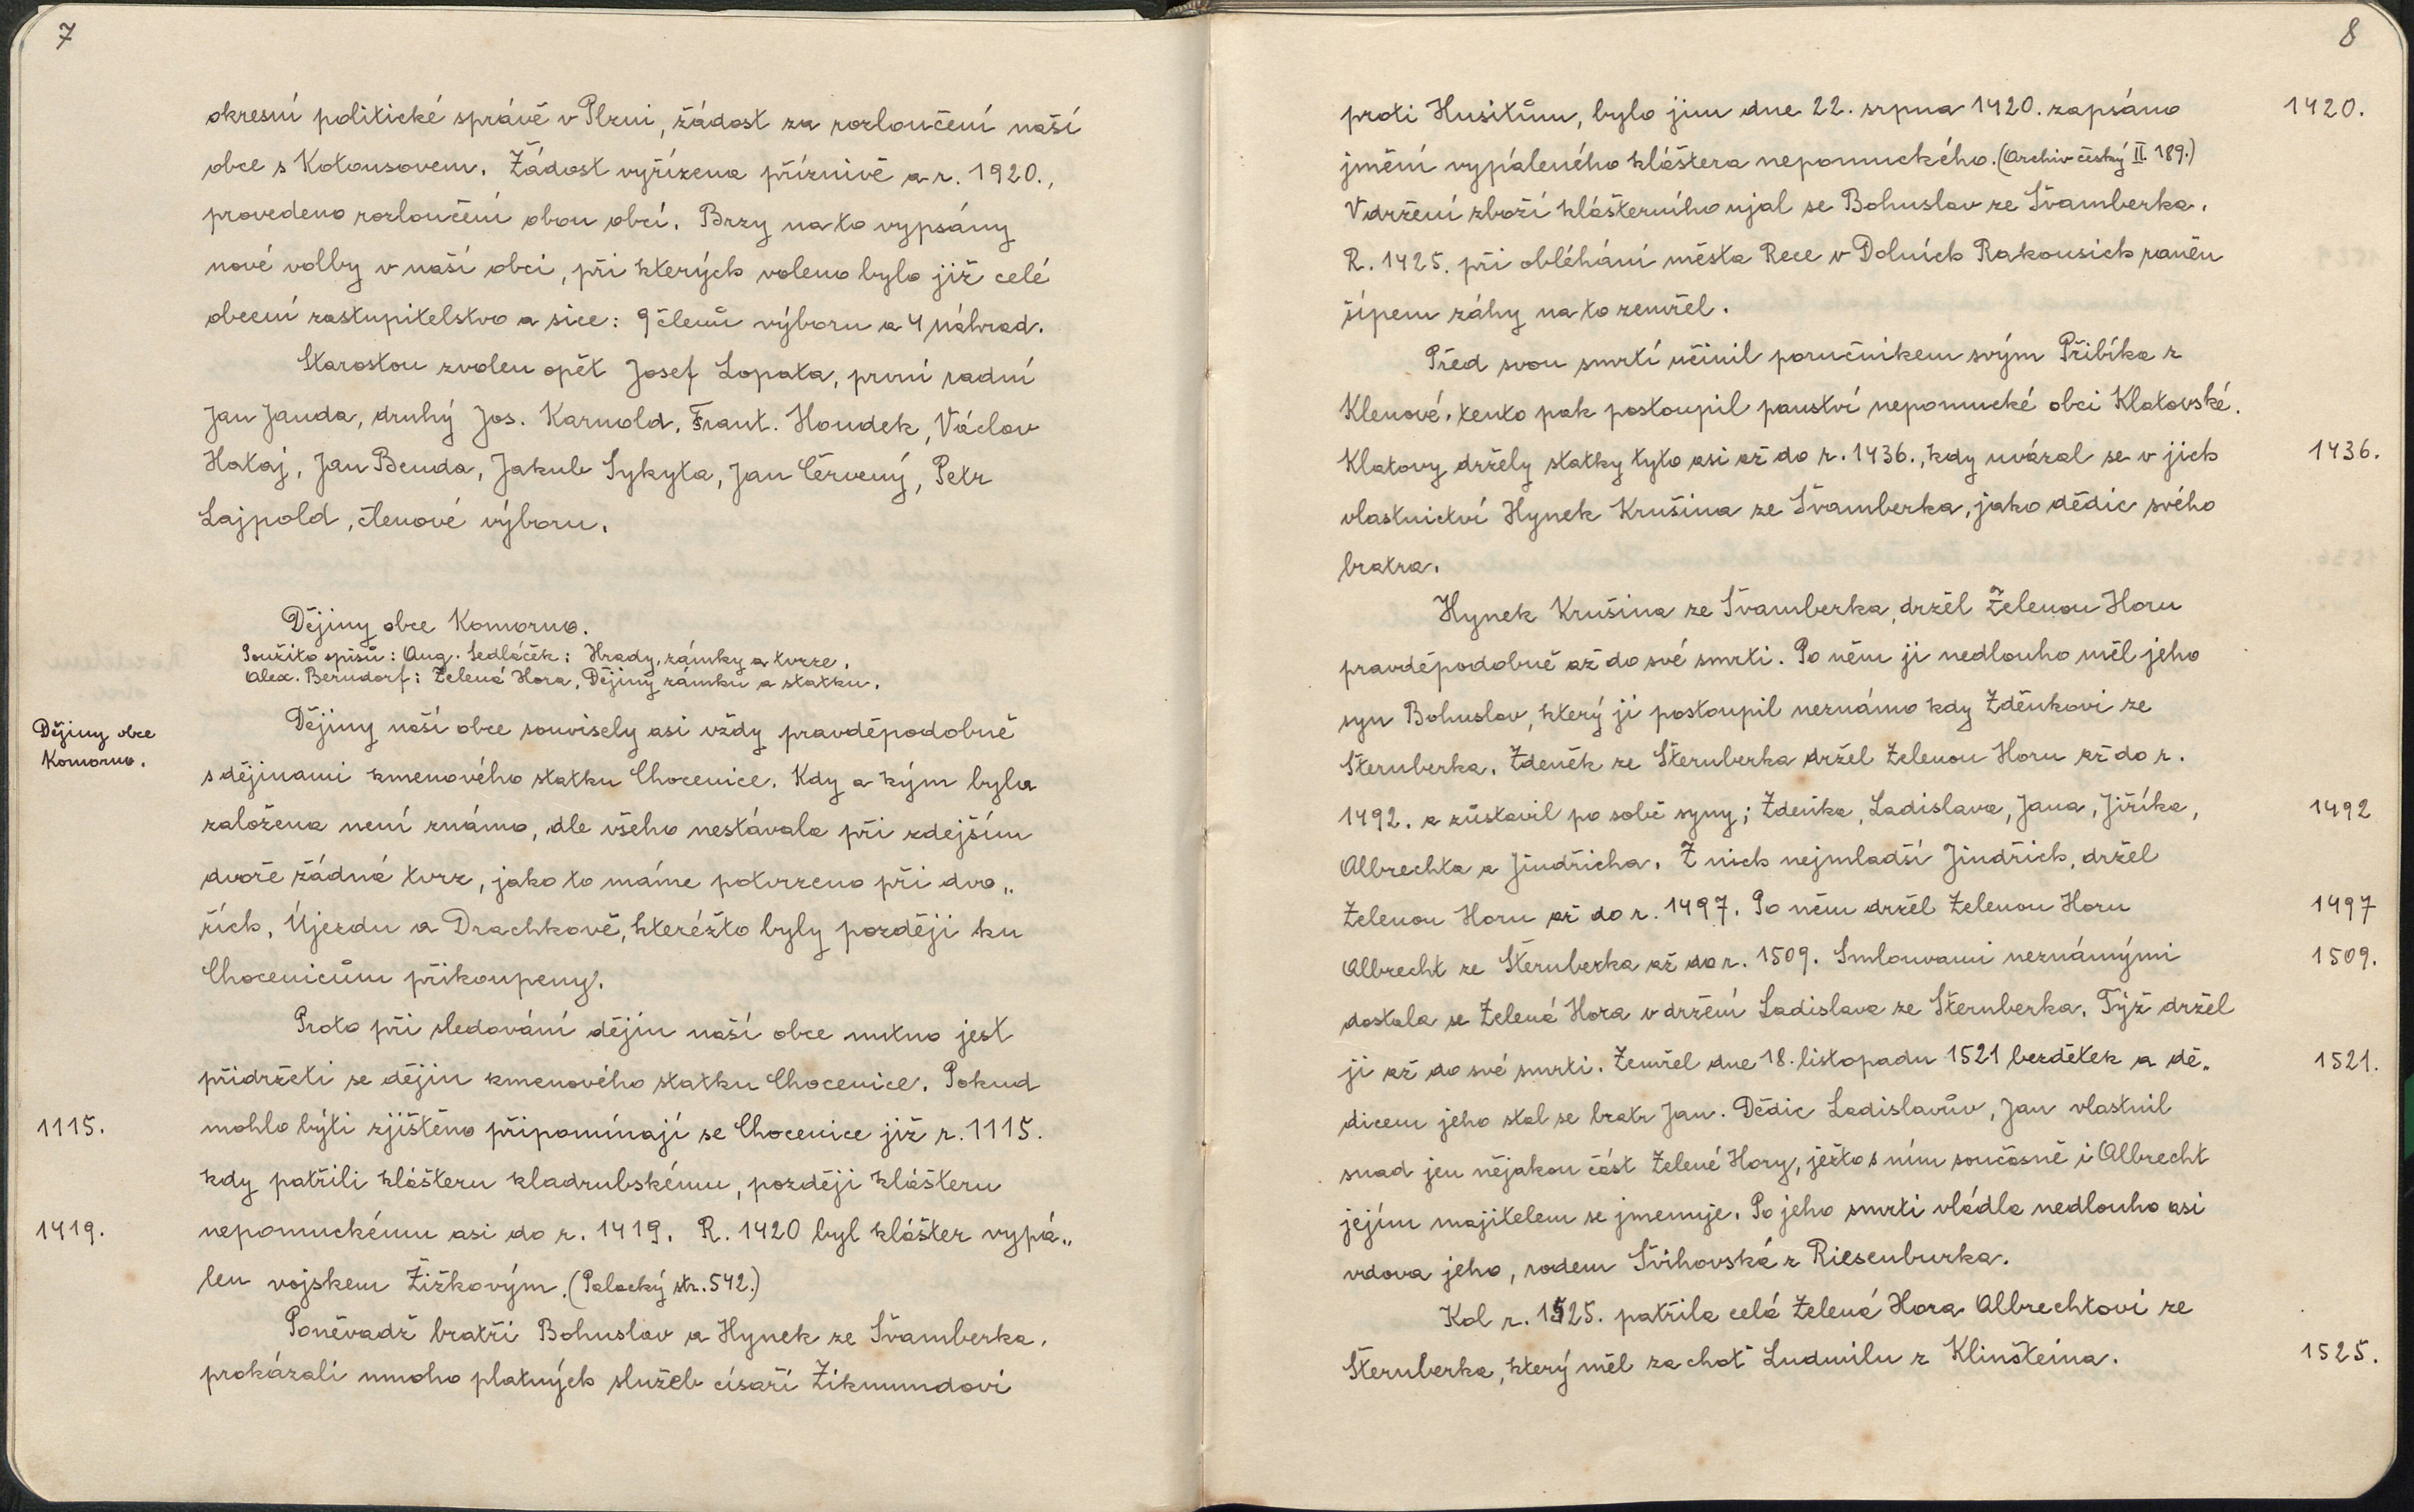 7
okresní politické správě v Plzni, žádost za rozloučení naší
obce s Kotousovem. Žádost vyřízena příznivě a r. 1920.,
provedeno rozloučení obou obcí. Brzy na to vypsány
nové volby v naší obci, při kterých voleno bylo již celé
obecní zastupitelstvo a sice: 9 členů výboru a 4 náhrad.
Starostou zvolen opět Josef Lopata, první radní
Jan Janda, druhý Jos. Karnold, Frant. Houdek, Václav
Hataj, Jan Benda, Jakub Sykyta, Jan Červený, Petr
Lajpold, členové výboru.
Dějiny obce Komorno.
Použito spisů: Aug. Sedláček: Hrady, zámky a tvrze.
Alex. Berndorf: Zelená Hora, Dějiny zámku a statku.
Dějiny obce
Komorno.
Dějiny naší obce souvisely asi vždy pravděpodobně
s dějinami kmenového statku Chocenice. Kdy a kým byla
založena není známo, dle všeho nestávala při zdejším
dvoře žádná tvrz, jako to máme potvrzeno při dvo„
řích, Újezdu a Drachkově, kteréžto byly později ku
Chocenicům přikoupeny.
Proto při sledování dějin naší obce nutno jest
přidržeti se dějin kmenového statku Chocenice. Pokud
1115.
mohlo býti zjištěno připomínají se Chocenice již r. 1115.
kdy patřili klášteru kladrubskému, později klášteru
1419.
nepomuckému asi do r. 1419. R. 1420 byl klášter vypá„
len vojskem Žižkovým. (Palacký str. 542.)
Poněvadž bratři Bohuslav a Hynek ze Švamberka,
prokázali mnoho platných služeb císaři Zikmundovi
8
proti Husitům, bylo jim dne 22. srpna 1420. zapsáno
1420.
jmění vypáleného kláštera nepomuckého. (Archiv český II. 189.)
V držení zboží klášterního ujal se Bohuslav ze Švamberka.
R. 1425. při obléhání města Rece v Dolních Rakousích raněn
šípem záhy na to zemřel.
Před svou smrtí učinil poručníkem svým Přibíka z
Klenové, tento pak postoupil panství nepomucké obci Klatovské.
Klatovy držely statky tyto asi až do r. 1436., kdy uvázal se v jich
1436.
vlastnictví Hynek Krušina ze Švamberka, jako dědic svého
bratra.
Hynek Krušina ze Švamberka, držel Zelenou Horu
pravděpodobně až do své smrti. Po něm ji nedlouho měl jeho
syn Bohuslav, který ji postoupil neznámo kdy Zděnkovi ze
Šternberka. Zdeněk ze Šternberka držel Zelenou Horu až do r.
1492. a zůstavil po sobě syny; Zdeňka, Ladislava, Jana, Jiříka,
1492
Albrechta a Jindřicha. Z nich nejmladší Jindřich, držel
Zelenou Horu až do r. 1497. Po něm držel Zelenou Horu
1497
Albrecht ze Šternberka až do r. 1509. Smlouvami neznámými
1509.
dostala se Zelená Hora v držení Ladislava ze Šternberka. Týž držel
ji až do své smrti. Zemřel dne 18. listopadu 1521 bezdětek a dě„
1521.
dicem jeho stal se bratr Jan. Dědic Ladislavův, Jan vlastnil
snad jen nějakou část Zelené Hory, ježto s ním současně i Albrecht
jejím majitelem se jmenuje. Po jeho smrti vládla nedlouho asi
vdova jeho, rodem Švihovská z Riesenburka.
Kol r. 1525. patřila celá Zelená Hora Albrechtovi ze
Šternberka, který měl za choť Ludmilu z Klinšteina.
1525.